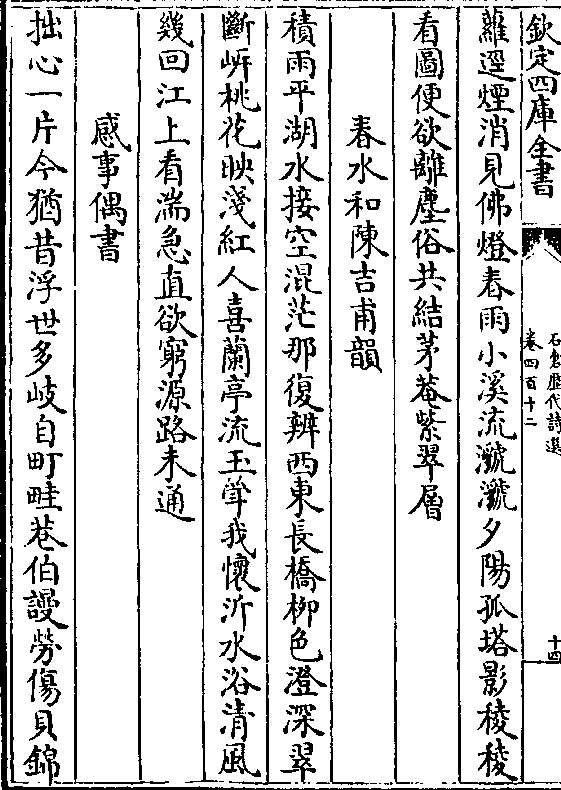 欽定四庫全書
石倉歷代詩選
卷四百十二
十四
蘿逕煙消見佛燈春雨小溪流瀫瀫夕陽孤塔影稜稜
看圖便欲離塵俗共結茅菴紫翠層
春水和陳吉甫韻
積雨平湖水接空混茫那復辨西東長橋柳色澄深翠
斷岍桃花映淺紅人喜蘭亭流玉斝我懷沂水浴清風
幾回江上看湍急直欲窮源路未通
感事偶書
拙心一片今猶昔浮世多岐自町畦巷伯謾勞傷貝錦